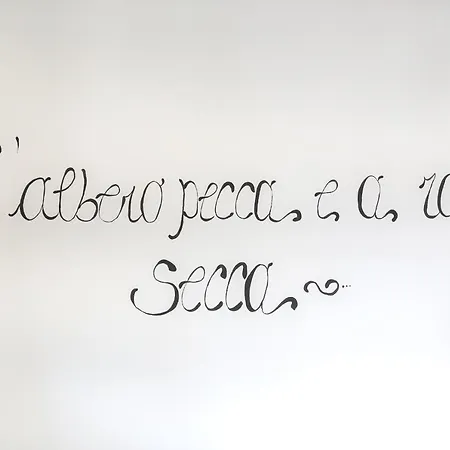 'albero pecca e a
secca~...